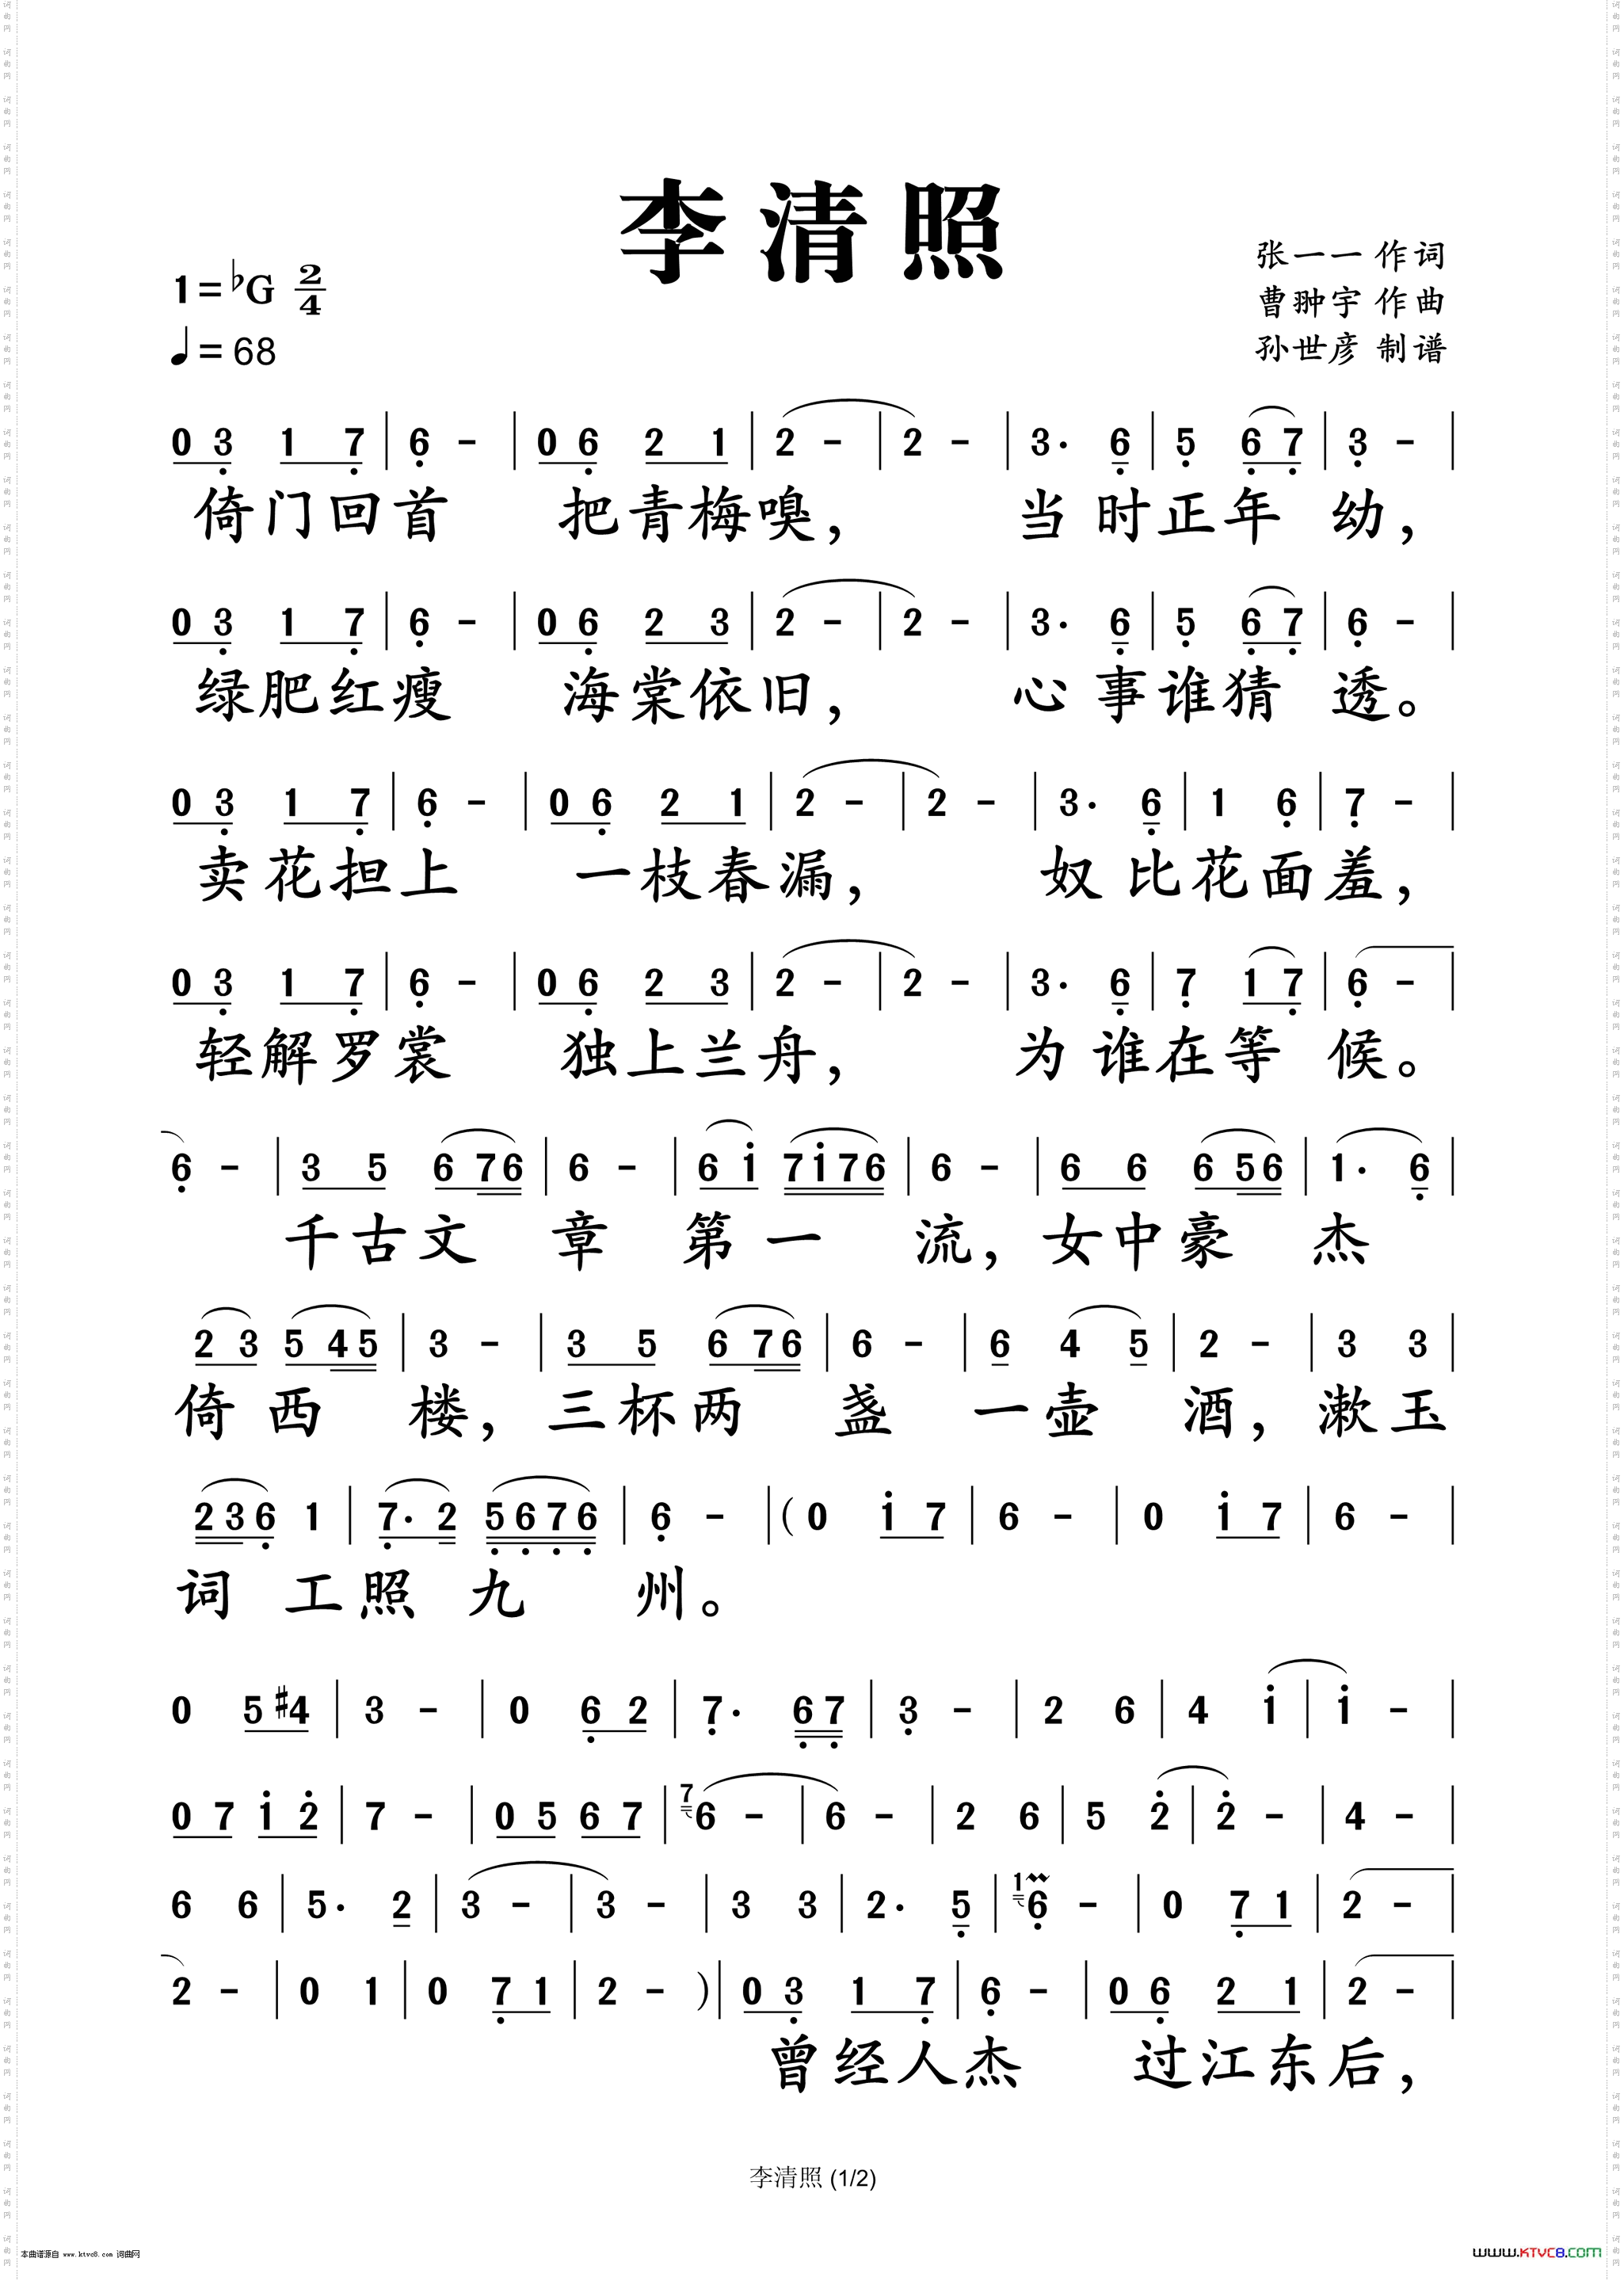 李清照
1=♭G 2/4
♩=68
张一一 作词
曹翀宇 作曲
孙世彦 制谱
0 3 1 7 | 6 - | 0 6 2 1 | 2 - | 2 - | 3· 6 | 5 6 7 | 3 - |
倚门回首 把青梅嗅， 当时正年幼，
0 3 1 7 | 6 - | 0 6 2 3 | 2 - | 2 - | 3· 6 | 5 6 7 | 6 - |
绿肥红瘦 海棠依旧， 心事谁猜透。
0 3 1 7 | 6 - | 0 6 2 1 | 2 - | 2 - | 3· 6 | 1 6 | 7 - |
卖花担上 一枝春漏， 奴比花面羞，
0 3 1 7 | 6 - | 0 6 2 3 | 2 - | 2 - | 3· 6 | 7 1 7 | 6 - |
轻解罗裳 独上兰舟， 为谁在等候。
6 - | 3 5 6 7 6 | 6 - | 6 i 7 i 7 6 | 6 - | 6 6 6 5 6 | 1· 6 |
千古文章 第一流，女中豪杰
2 3 5 4 5 | 3 - | 3 5 6 7 6 | 6 - | 6 4 5 | 2 - | 3 3 |
倚西楼，三杯两盏 一壶酒，漱玉
2 3 6 1 | 7· 2 5 6 7 6 | 6 - | ( 0 i 7 | 6 - | 0 i 7 | 6 - |
词工照九州。
0 5 #4 | 3 - | 0 6 2 | 7· 6 7 | 3 - | 2 6 | 4 i | i - |
0 7 i 2 | 7 - | 0 5 6 7 | 7 6 - | 6 - | 2 6 | 5 2 | 2 - | 4 - |
6 6 | 5· 2 | 3 - | 3 - | 3 3 | 2· 5 | 1 6 - | 0 7 1 | 2 - |
2 - | 0 1 | 0 7 1 | 2 - ) | 0 3 1 7 | 6 - | 0 6 2 1 | 2 - |
曾经人杰 过江东后，
李清照 (1/2)
本曲谱源自 www.ktvc8.com 词曲网
WWW.KTVC8.COM